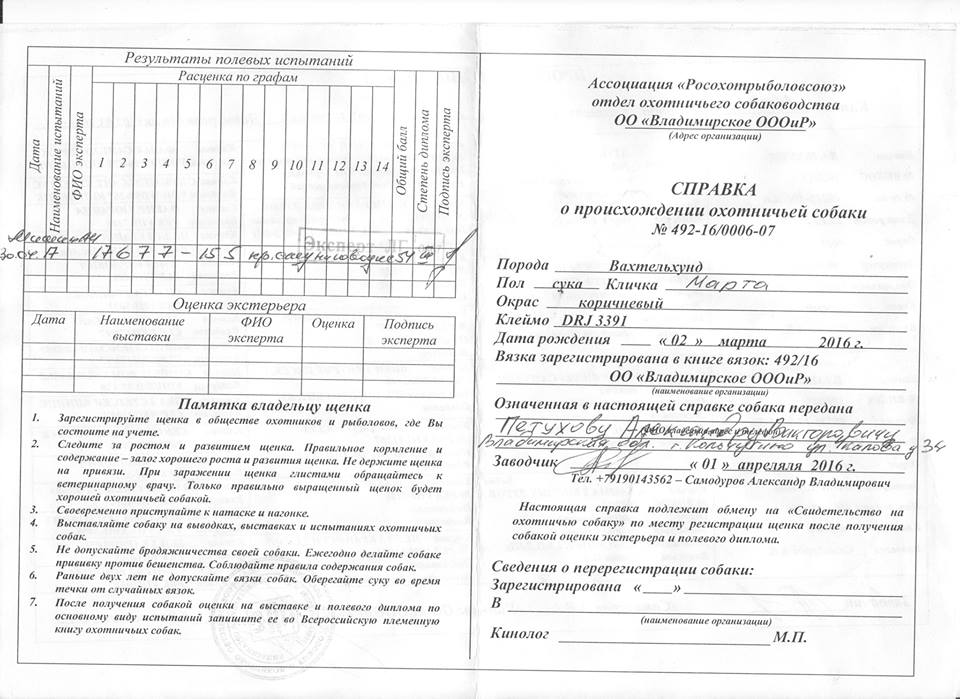 Результаты полевых испытаний
Дата
Наименование испытаний
ФИО эксперта
Расценка по графам
1 2 3 4 5 6 7 8 9 10 11 12 13 14
Общий балл
Степень диплома
Подпись эксперта
Эксперт
30.04.17 17 6 7 7 – 15 5 54 III
Оценка экстерьера
Дата Наименование выставки ФИО эксперта Оценка Подпись эксперта
Памятка владельцу щенка
1. Зарегистрируйте щенка в обществе охотников и рыболовов, где Вы
состоите на учете.
2. Следите за ростом и развитием щенка. Правильное кормление и
содержание – залог хорошего роста и развития щенка. Не держите щенка
на привязи. При заражении щенка глистами обращайтесь к
ветеринарному врачу. Только правильно выращенный щенок будет
хорошей охотничьей собакой.
3. Своевременно приступайте к натаске и нагонке.
4. Выставляйте собаку на выводках, выставках и испытаниях охотничьих
собак.
5. Не допускайте бродяжничества своей собаки. Ежегодно делайте собаке
прививку против бешенства. Соблюдайте правила содержания собак.
6. Раньше двух лет не допускайте вязки собак. Оберегайте суку во время
течки от случайных вязок.
7. После получения собакой оценки на выставке и полевого диплома по
основному виду испытаний запишите ее во Всероссийскую племенную
книгу охотничьих собак.
Ассоциация «Росохотрыболовсоюз»
отдел охотничьего собаководства
ОО «Владимирское ОООиР»
(Адрес организации)
СПРАВКА
о происхождении охотничьей собаки
№ 492-16/0006-07
Порода Вахтельхунд
Пол сука Кличка Марта
Окрас коричневый
Клеймо DRJ 3391
Дата рождения « 02 » марта 2016 г.
Вязка зарегистрирована в книге вязок: 492/16
ОО «Владимирское ОООиР»
(наименование организации)
Означенная в настоящей справке собака передана
Петухову Александру Викторовичу
Владимирская обл. г. Кольчугино ул. д 34
Заводчик « 01 » апреляля 2016 г.
Тел. +79190143562 – Самодуров Александр Владимирович
Настоящая справка подлежит обмену на «Свидетельство на
охотничью собаку» по месту регистрации щенка после получения
собакой оценки экстерьера и полевого диплома.
Сведения о перерегистрации собаки:
Зарегистрирована « »
В
(наименование организации)
Кинолог М.П.